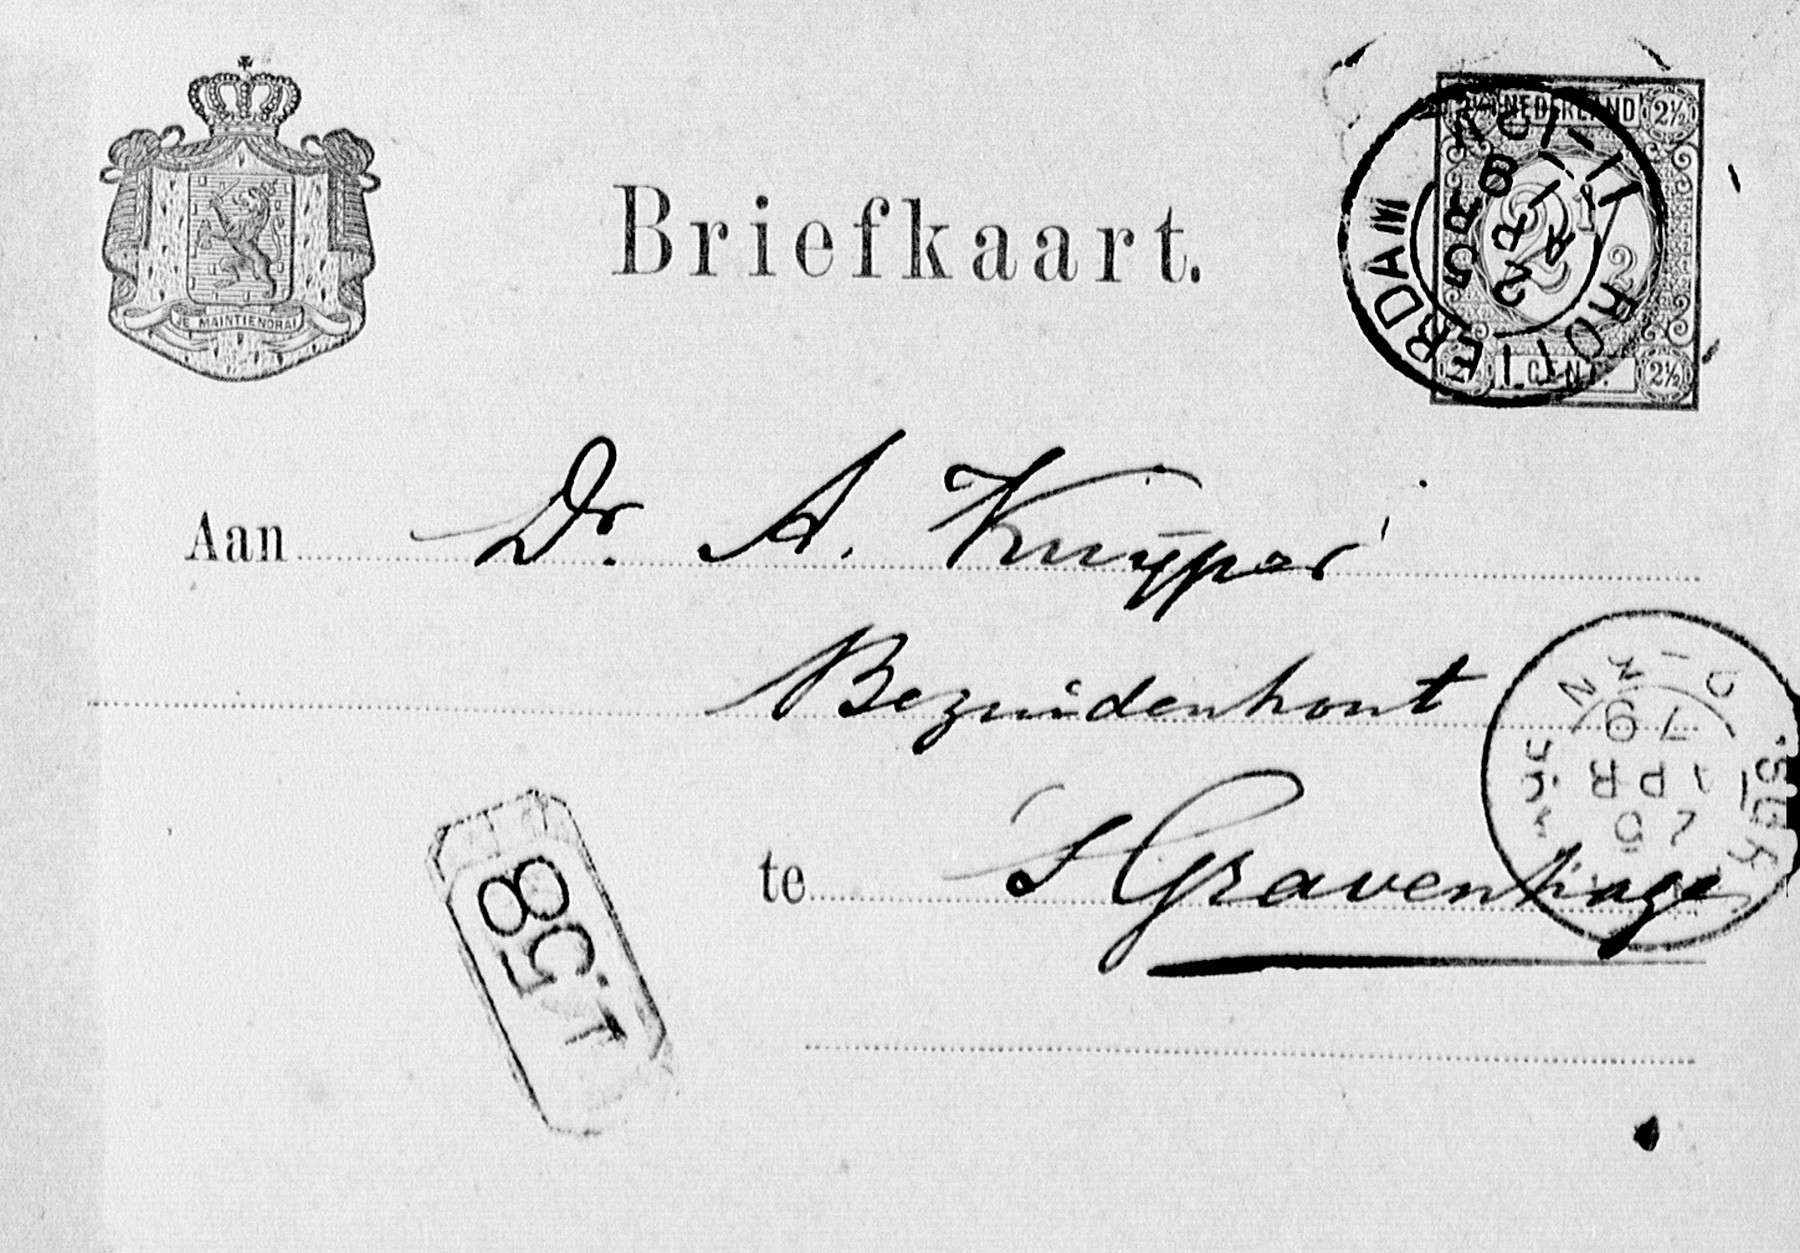 JE MAINTIENDRAI
Briefkaart.
NEDERLAND
2½
2½
CENT.
2½
ROTTERDAM
25 APR
Aan Dr. A. Kuyper
Bezuidenhout
te 's Gravenhage
79
APR
25
85.T